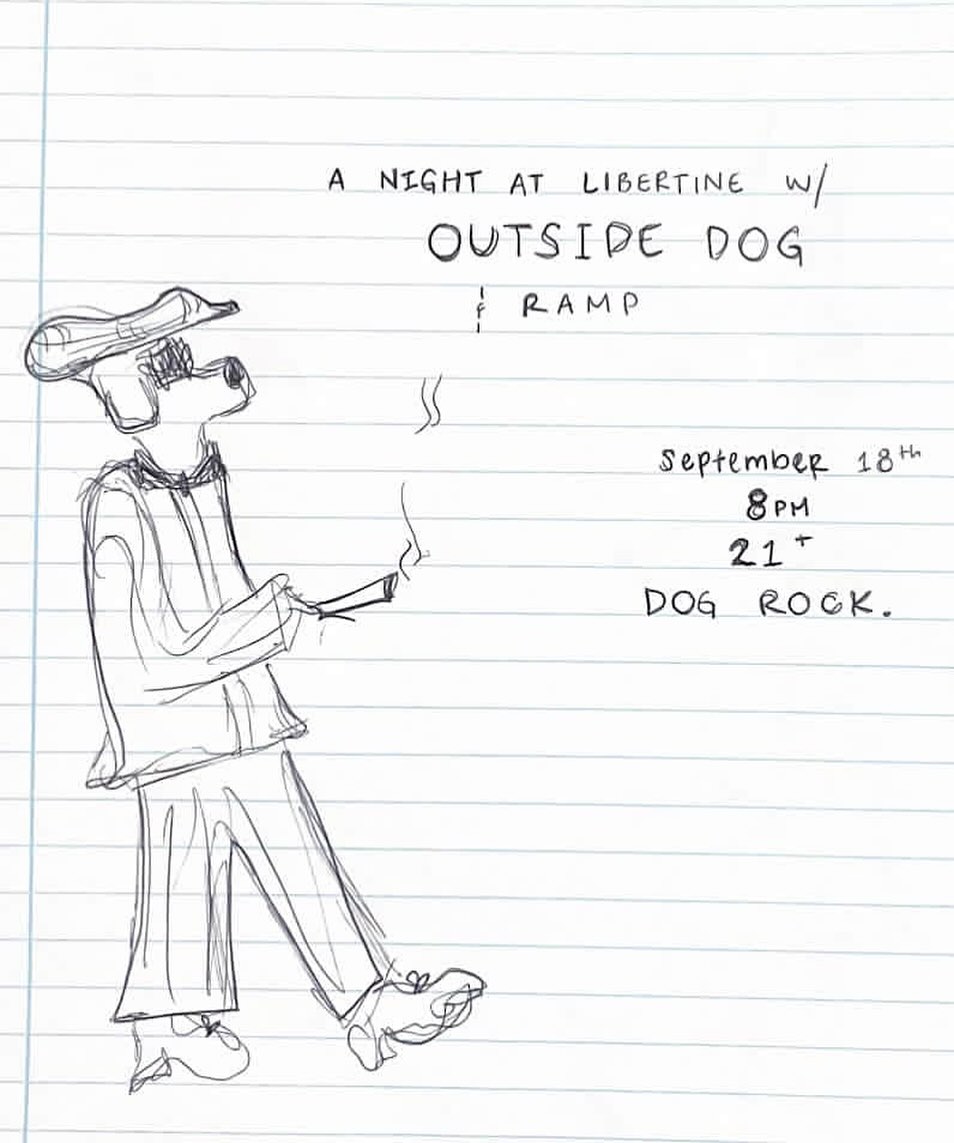 A NIGHT AT LIBERTINE W/
OUTSIDE DOG
& RAMP
September 18th
8PM
21+
DOG ROCK.